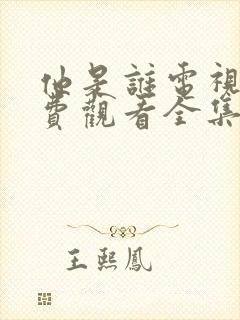 他是誰電視
費觀看全集
王熙鳳